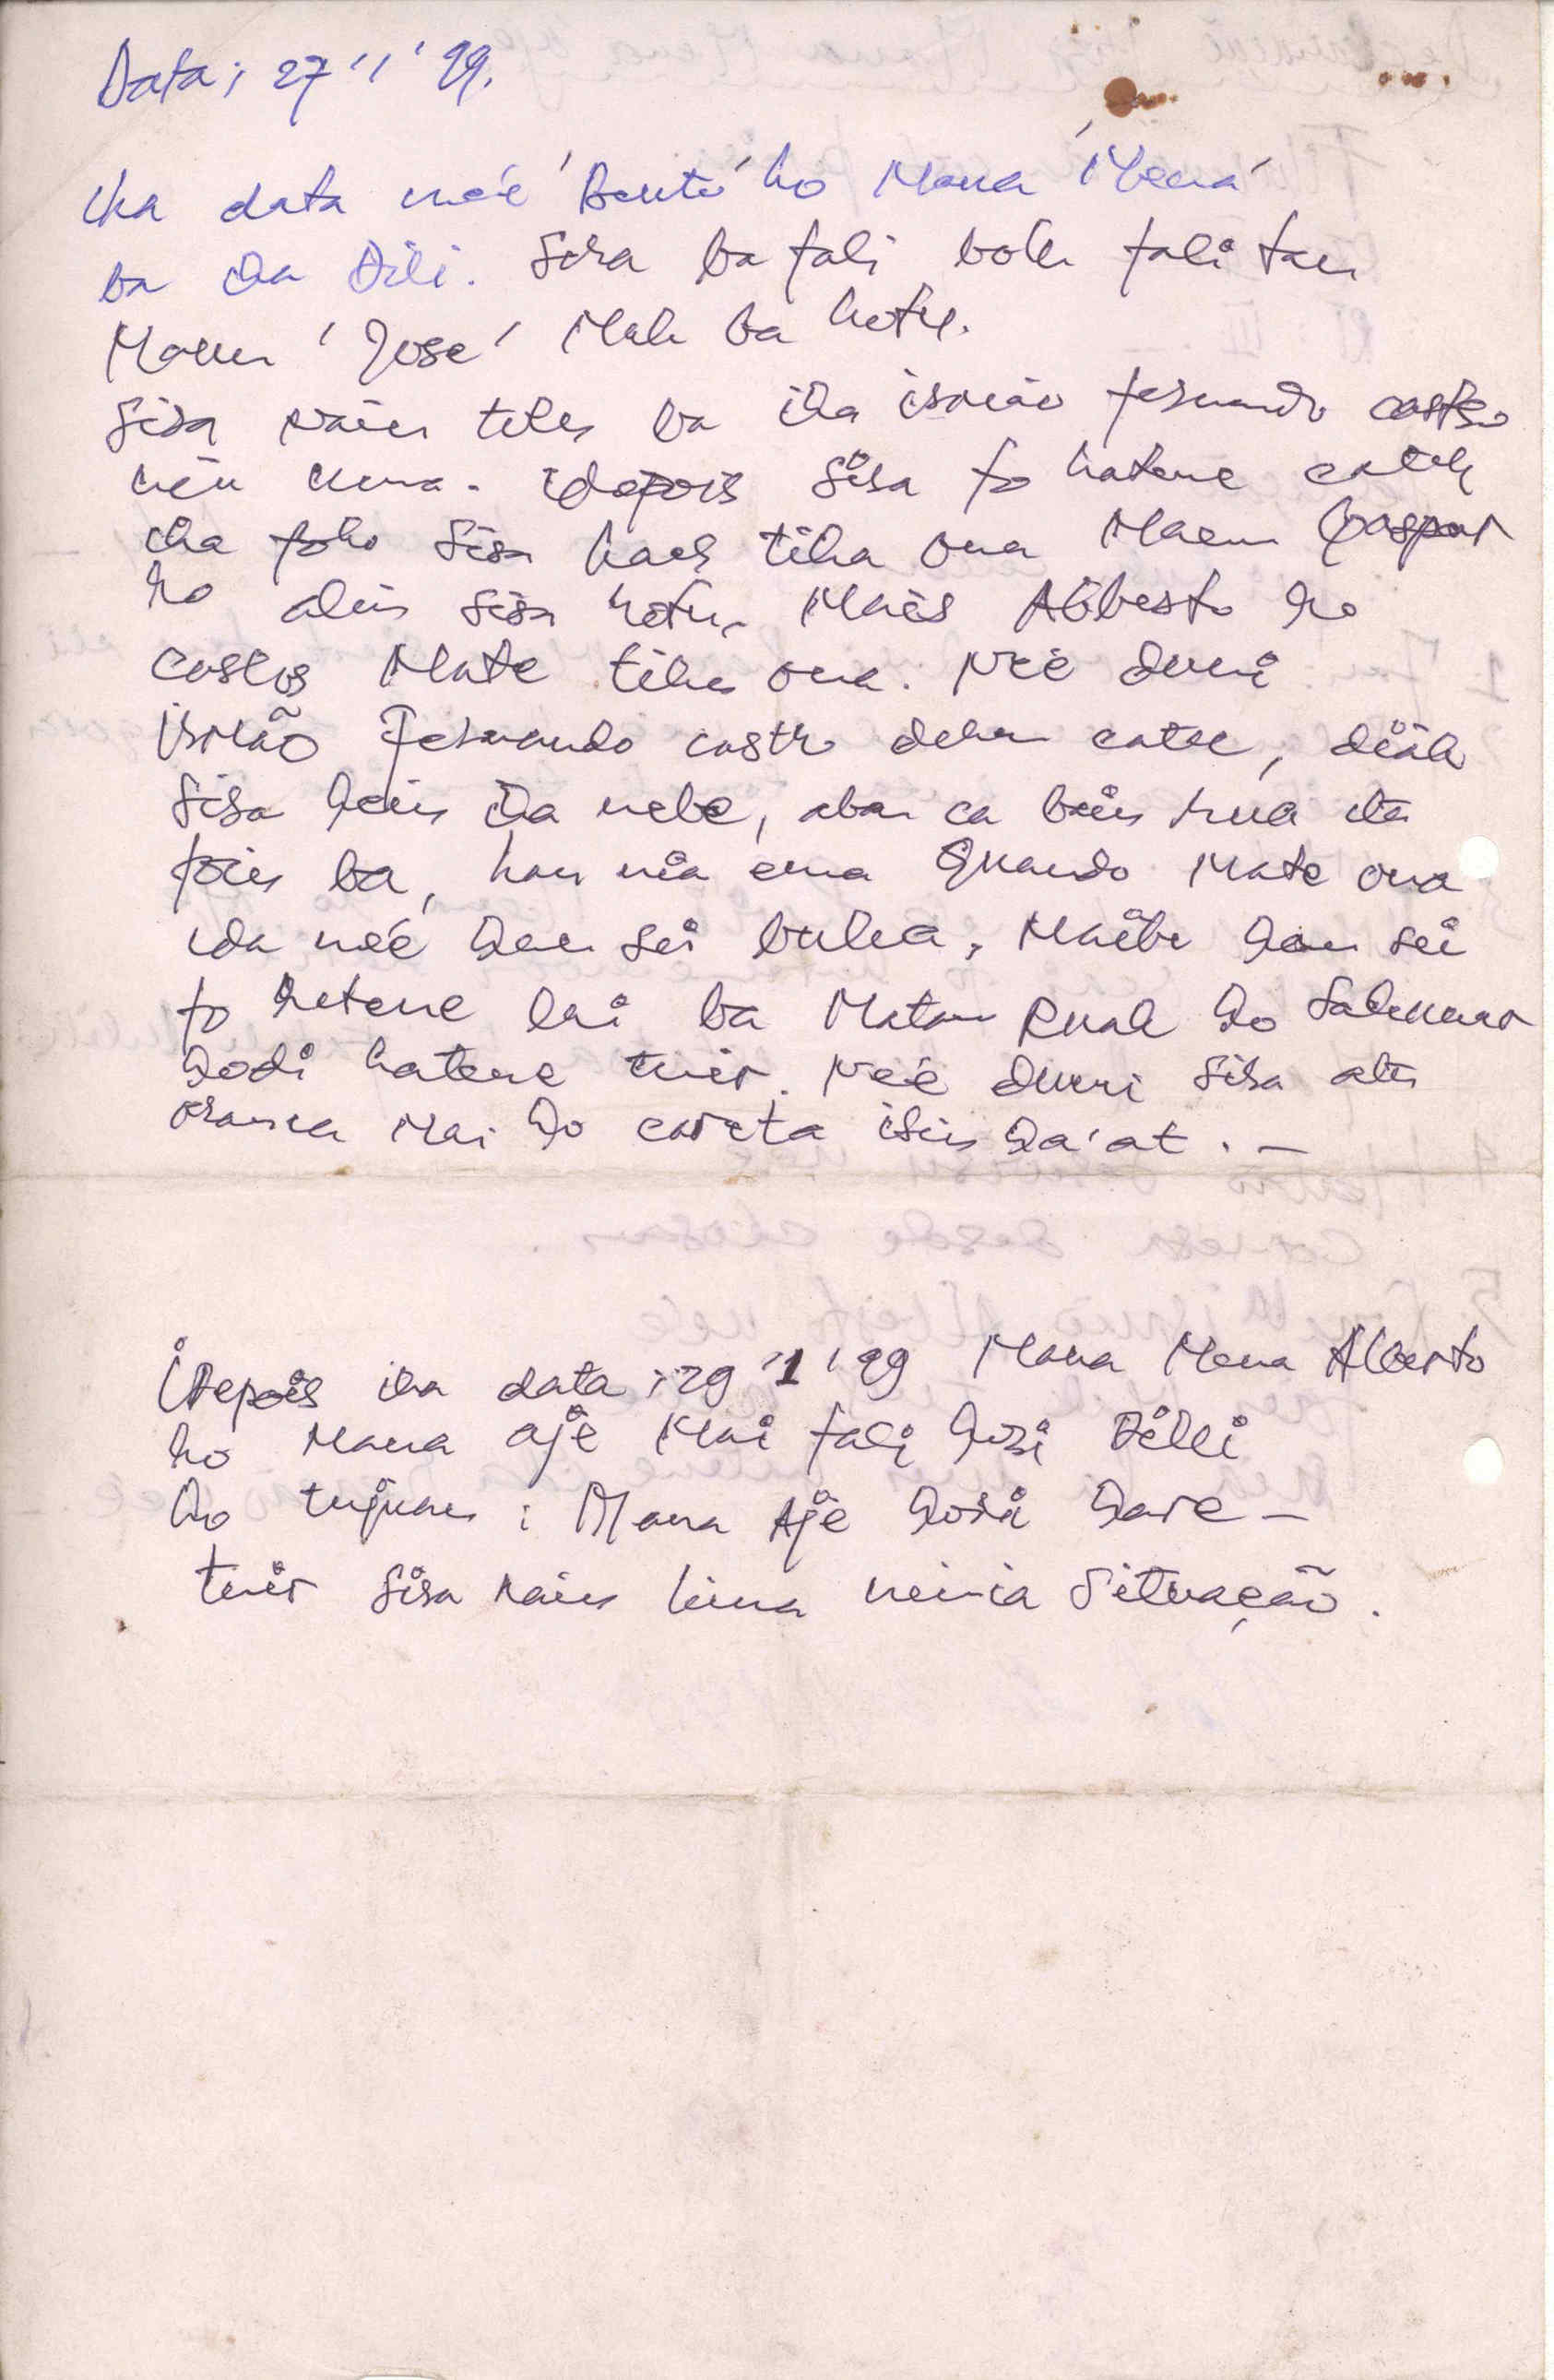 Data; 27'1'99.
iha data neé 'Bento' ho Mana 'Mena'
ba iha Dili. Sira ba fali bolu fali tan
Maun 'Jose' Mali ba hotu.
Sira nain tolu ba iha irmão fernando castro
niu uma. idepois sira fo hatene catak
iha foho sira kaer tiha ona Maun Gaspar
ho alin sira hotu, Mais Alberto ho
Carlos Mate tiha ona. Neé duni
irmão Fernando castro dehan catac, diak
sira hein iha nebe, aban ca bain rua ita
foin ba, hau nia ema Quando Mate ona
ida neé hau sei buka, Maibe hau sei
fo hatene lai ba Matan Ruak ho Salemar
hodi hatene tuir. Neé duni sira atu
oransa Mai ho careta isin ha'at . –
iDepois iha data ; 29'1'99 Mana Mena Alberto
ho Mana aje Mai fali hosi Dilli
ho tujuan : Mana Aje hosi hare –
tuir sira nain lima neinia Situação .